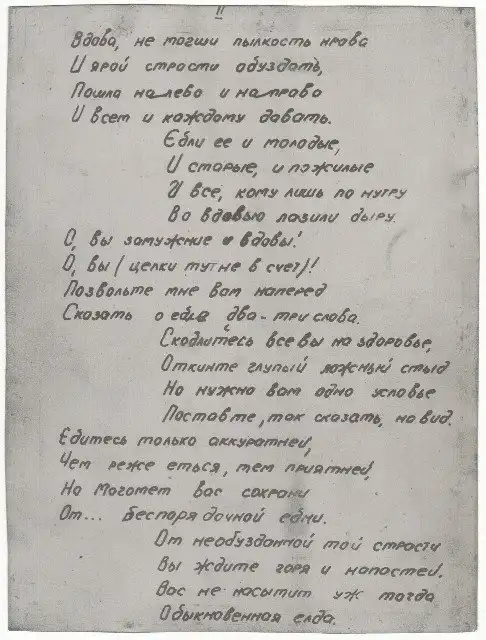 II
Вдова, не могши пылкость нрава
И ярой страсти обуздать,
Пошла налево и направо
И всем и каждому давать.
Ебли ее и молодые,
И старые, и пожилые
И все, кому лишь по нутру
Во вдовью лазили дыру.
О, вы замужние и вдовы!
О, вы (целки тут не в счет)!
Позвольте мне вам наперед
Сказать о ебле два-три слова.
Скодлитесь все вы на здоровье,
Откинте глупый ложный стыд
Но нужно вам одно условье
Поставте, так сказать, на вид.
Едитесь только аккуратней,
Чем реже еться, тем приятней,
Но Могомет вас сохрани
От... Беспорядочной едни.
От необузданной той страсти
Вы ждите горя и напастей.
Вас не насытит уж тогда
Обыкновенная елда.